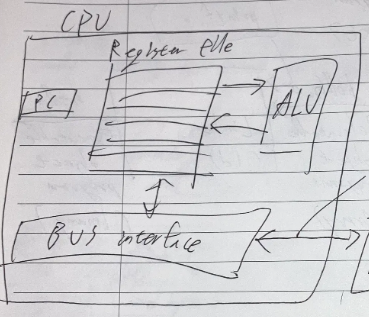 CPU
Register file
PC
ALU
BUS interface